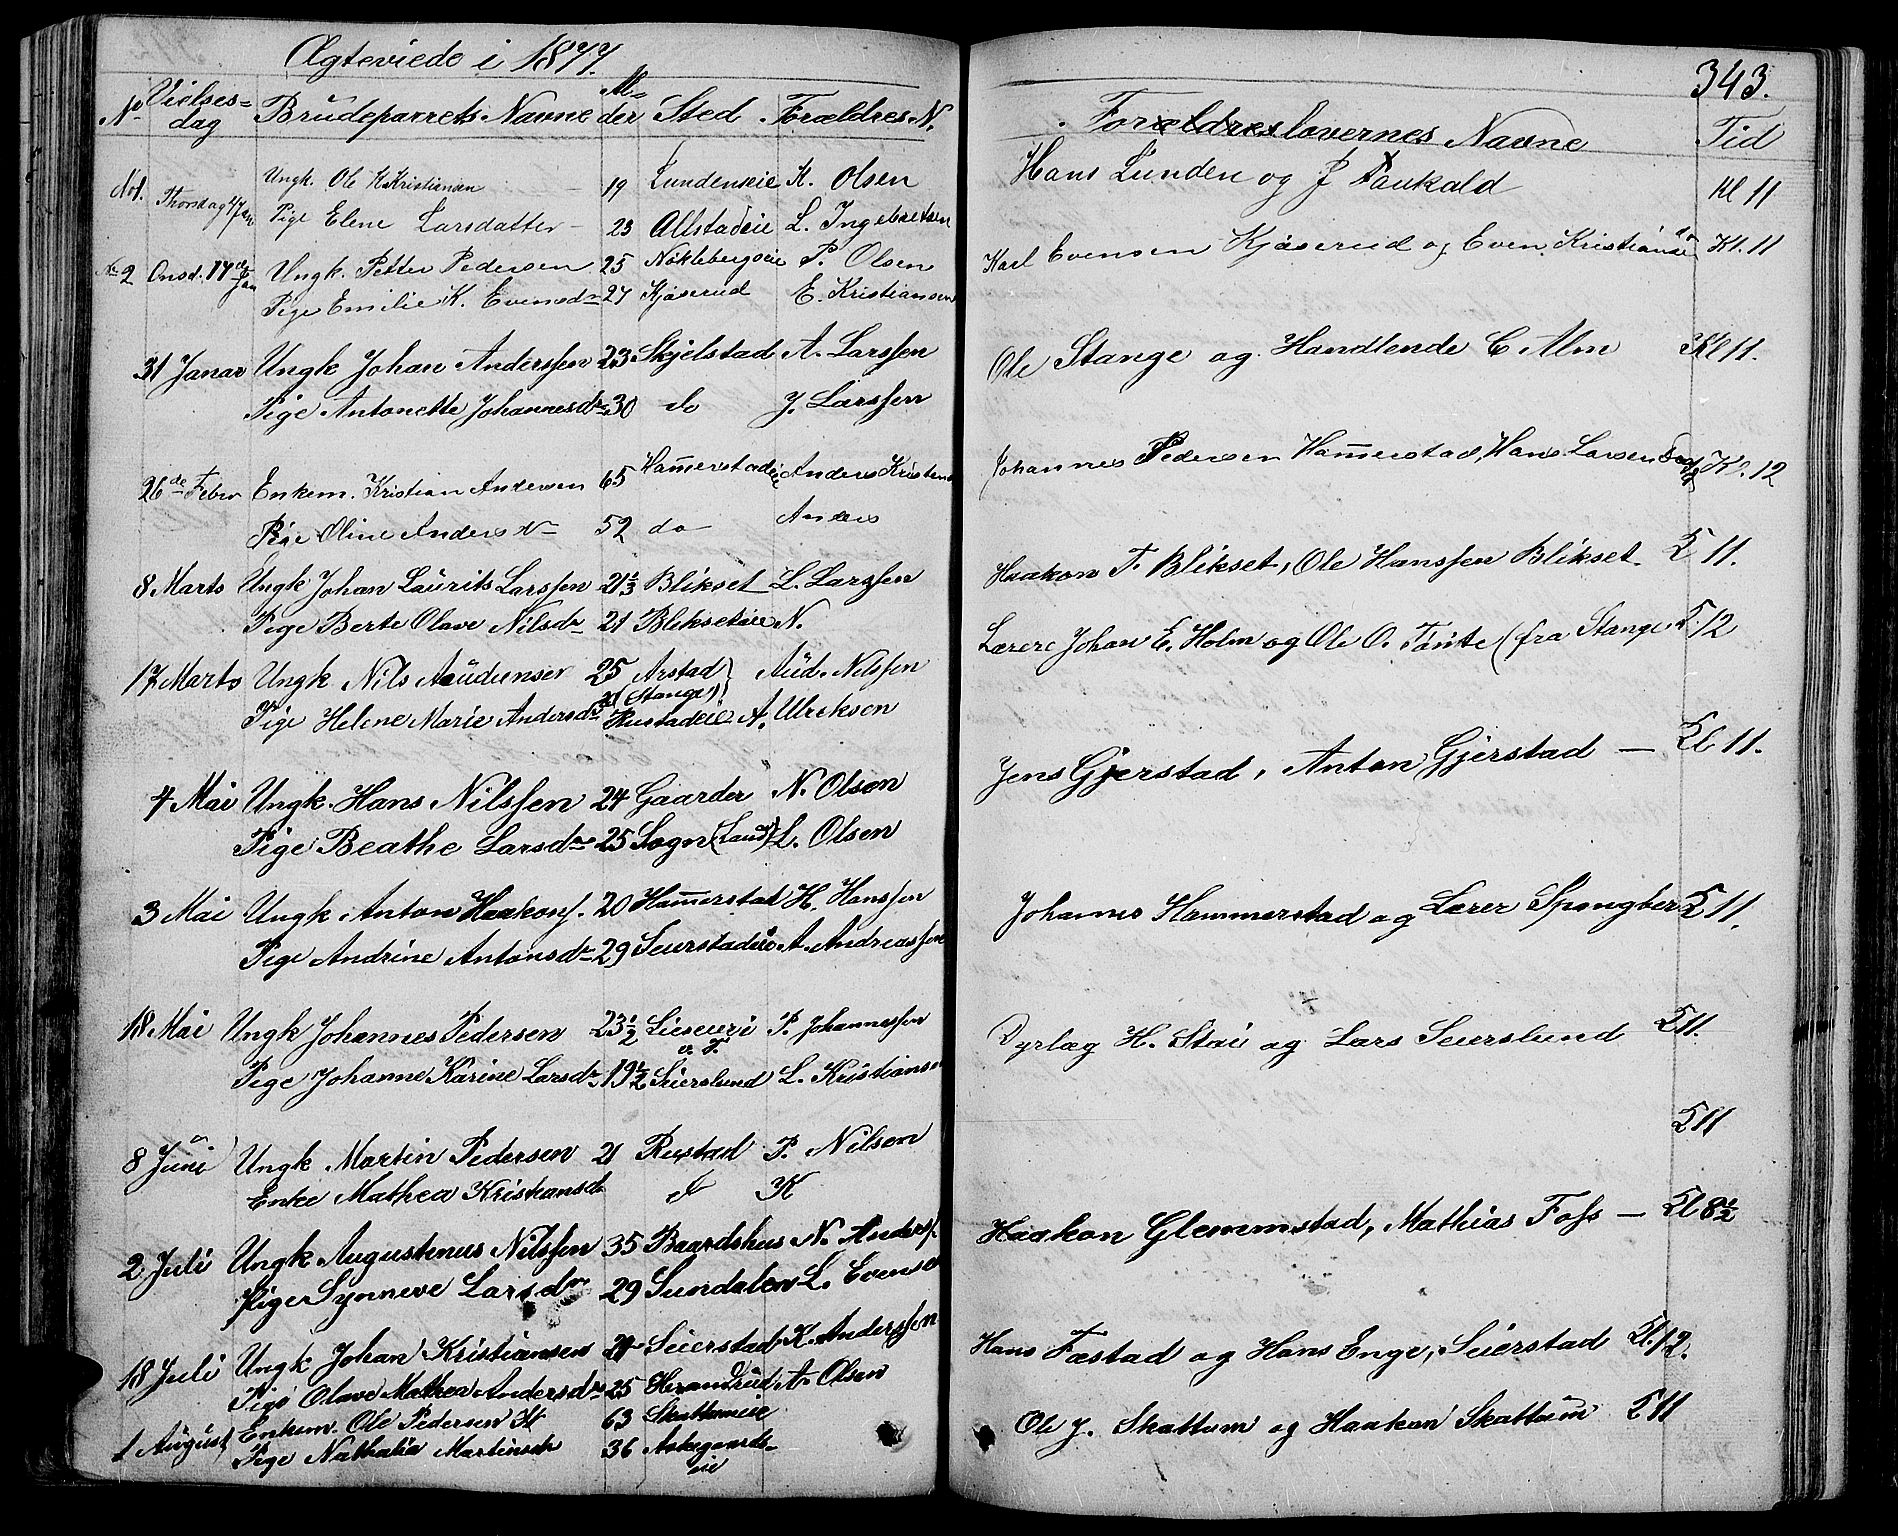 Ægteviede i 1877.
343.
No Vielses=dag Brudeparrets Navne Al=der Sted Forældres N.
Forældres lovernes Navne Tid
No 1. Thorsdag 4/Jan Ungk. Ole K Kristiansen 19 Lundenseie K. Olsen
Hans Lunden og J Faukald Kl 11
Pige Elene Larsdatter 23 Allstadeie L. Ingebretsen
No 2 Onsd. 17de Jan Ungk. Petter Pedersen 25 Nöklebergseie P. Olsen
Karl Evensen Kjöserud og Even Kristiansen do Kl. 11
Pige Emilie K. Evensdr 27 Kjöserud E. Kristiansen
31 Janar Ungk Johan Anderssen 23 Skjelstad A. Larssen
Ole Stange og Handlende C Alm Kl 11.
Pige Antonette Johannesdr 30 do J. Larssen
26de Febr Enkem. Kristian Andersen 65 Hamerstadeie Anders Kristens
Johannes Pedersen Hamerstad, Hans Larsen Kl. 12
Pige Oline Anders dr 52 do Anders
8 Marts Ungk Johan Laurits Larssen 21 1/3 Blikset L. Larssen
Haakon T. Blikset, Ole Hanssen Blikset. Kl 11.
Pige Berte Olave Nilsdr 21 Blikseteie N.
17 Marts Ungk Nils Audunsen 25 Arstad (Stange) Aud. Nilssen
Lærere Johan E. Holm og Ole O. Tönte (fra Stange Kl. 12
Pige Helene Marie Andersdr Rustadeie A. Ulreksen
4 Mai Ungk. Hans Nilssen 24 Gaarder N. Olsen
Jens Gjerstad, Anton Gjerstad — Kl 11.
Pige Beathe Larsdr 25 Sogn (Land) L. Olsen
3 Mai Ungk Anton Haakons. 20 Hamerstad H. Hanssen
Johannes Hammerstad og Lærer Spongber Kl 11.
Pige Andrine Antonsdr 29 Seurstadeie A. Andreassen
18 Mai Ungk Johannes Pedersen 23 1/2 Lieseieri v. T. P. Johannessen
Dyrlæg H. Stai og Lars Seurslund Kl 11.
Pige Johanne Karine Larsdr 19 1/2 Seierslund L. Kristiansen
8 Juni Ungk Martin Pedersen 21 Rustad P. Nilsen
Kl 11
Enke Mathea Kristiansd do K
2 Juli Ungk Augustinus Nilssen 35 Baardshus N. Anders.
Haakon Glemmstad, Mathias Foss — Kl 8 1/2
Pige Synneve Larsdr 29 Sundalen L. Evensen
18 Juli Ungk Johan Kristiansen 21 Seierstad K. Anderssen
Hans Fæstad og Hans Enge, Seierstad Kl. 12.
Pige Olave Mathea Andersdr 25 Herandrud A. Olsen
1 August Enkem. Ole Pedersen St 63 Skattumeie
Ole J. Skattum og Haakon Skattum Kl 11
Pige Nathalia Martinsdr 36 Askegaards=eie